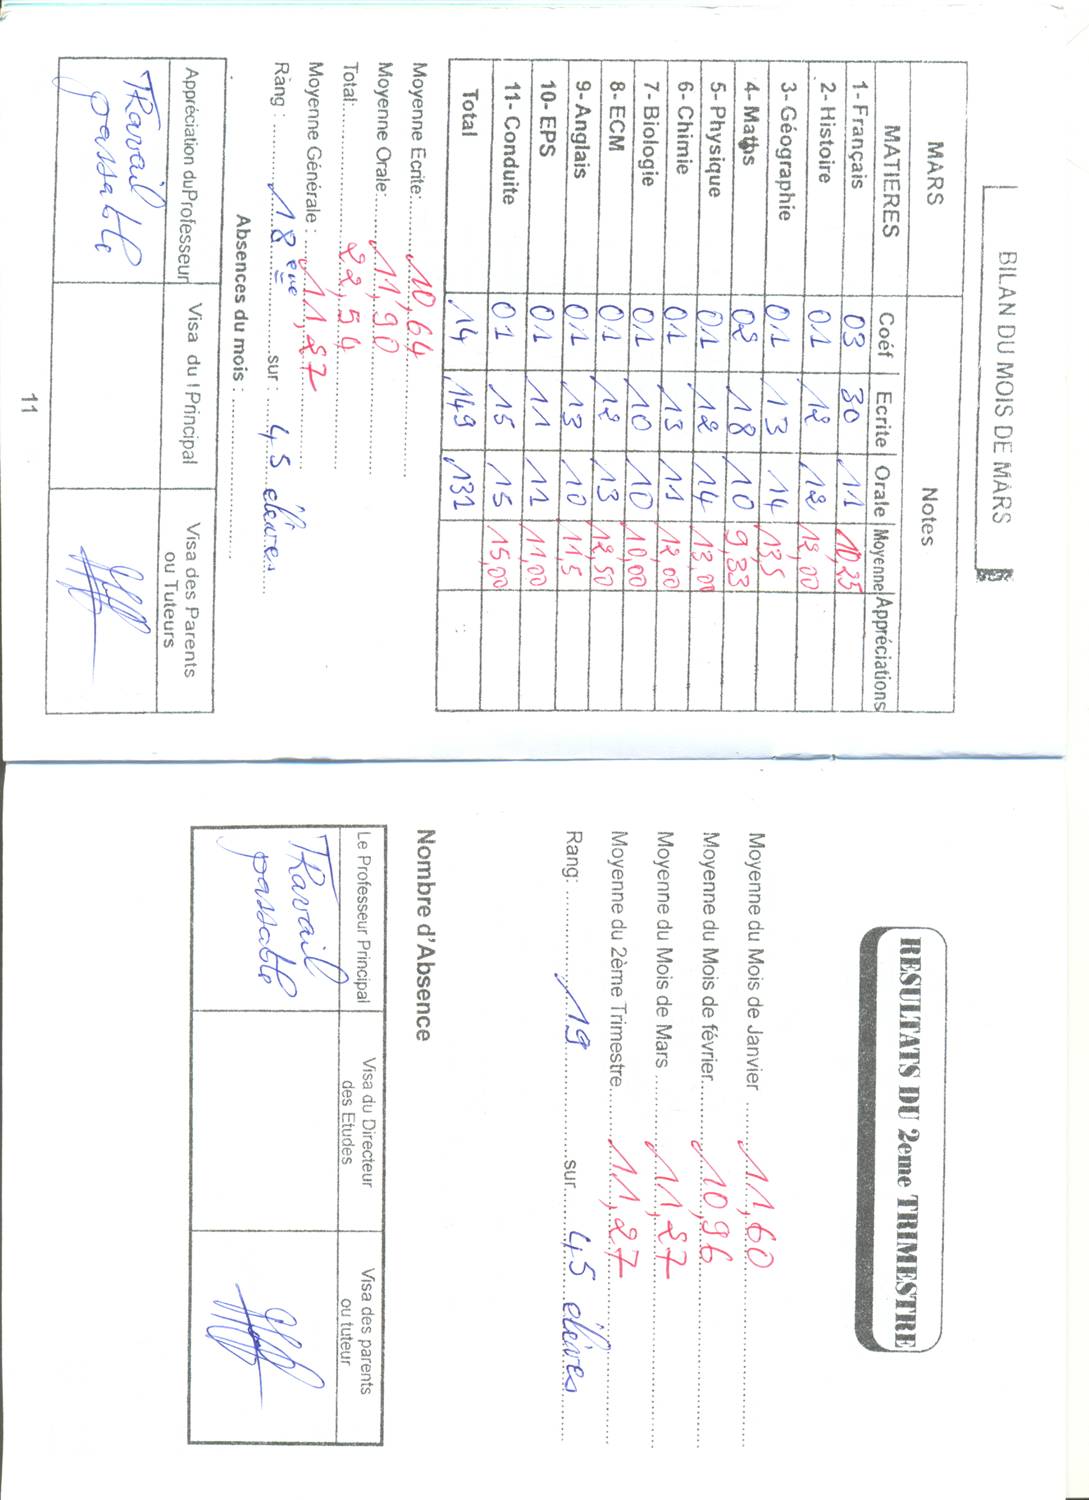 BILAN DU MOIS DE MARS
MARS Notes
MATIERES Coéf Ecrite Orale Moyenne Appréciations
1- Français 03 30 11 10,25
2- Histoire 01 12 12 12,00
3- Géographie 01 13 14 13,5
4- Maths 02 18 10 9,33
5- Physique 01 12 14 13,00
6- Chimie 01 13 11 12,00
7- Biologie 01 10 10 10,00
8- ECM 01 12 13 12,50
9- Anglais 01 13 10 11,5
10- EPS 01 11 11 11,00
11- Conduite 01 15 15 15,00
Total 14 149 131
Moyenne Ecrite: 10,64
Moyenne Orale: 11,90
Total: 22,54
Moyenne Générale : 11,27
Rang : 18 ème sur : 45 élèves
Absences du mois :
Appréciation du Professeur Visa du ! Principal Visa des Parents
ou Tuteurs
TRavail
passable
11
RESULTATS DU 2eme TRIMESTRE
Moyenne du Mois de Janvier 11,60
Moyenne du Mois de février 10,96
Moyenne du Mois de Mars 11,27
Moyenne du 2ème Trimestre 11,27
Rang: 19 sur 45 élèves
Nombre d'Absence
Le Professeur Principal Visa du Directeur Visa des parents
des Etudes ou tuteur
TRavail
passable